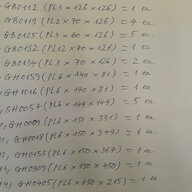 GB0112 (PL3 × 126 × 126) = 1 ea.
GB0119 (PL2 × 70 × 126) = 4 ea.
GB0125 (PL3 × 60 × 126) = 5 ea.
GB0132 (PL12 × 70 × 126) = 1 ea.
GB0134 (PL3 × 70 × 126) = 2 ea.
GH0159 (PL6 × 140 × 81) = 1 ea.
GH0016 (PL6 × 140 × 81) = 1 ea.
SH0057 (PL6 × 149 × 149) = 5 ea.
GH0009 (PL6 × 150 × 331) = 1 ea.
GH0018 (PL6 × 150 × 349) = 1 ea.
GH0153 (PL6 × 150 × 367) = 1 ea.
GH0309 (PL6 × 150 × 450) = 1 ea.
GH0405 (PL6 × 150 × 215) = 1 ea.